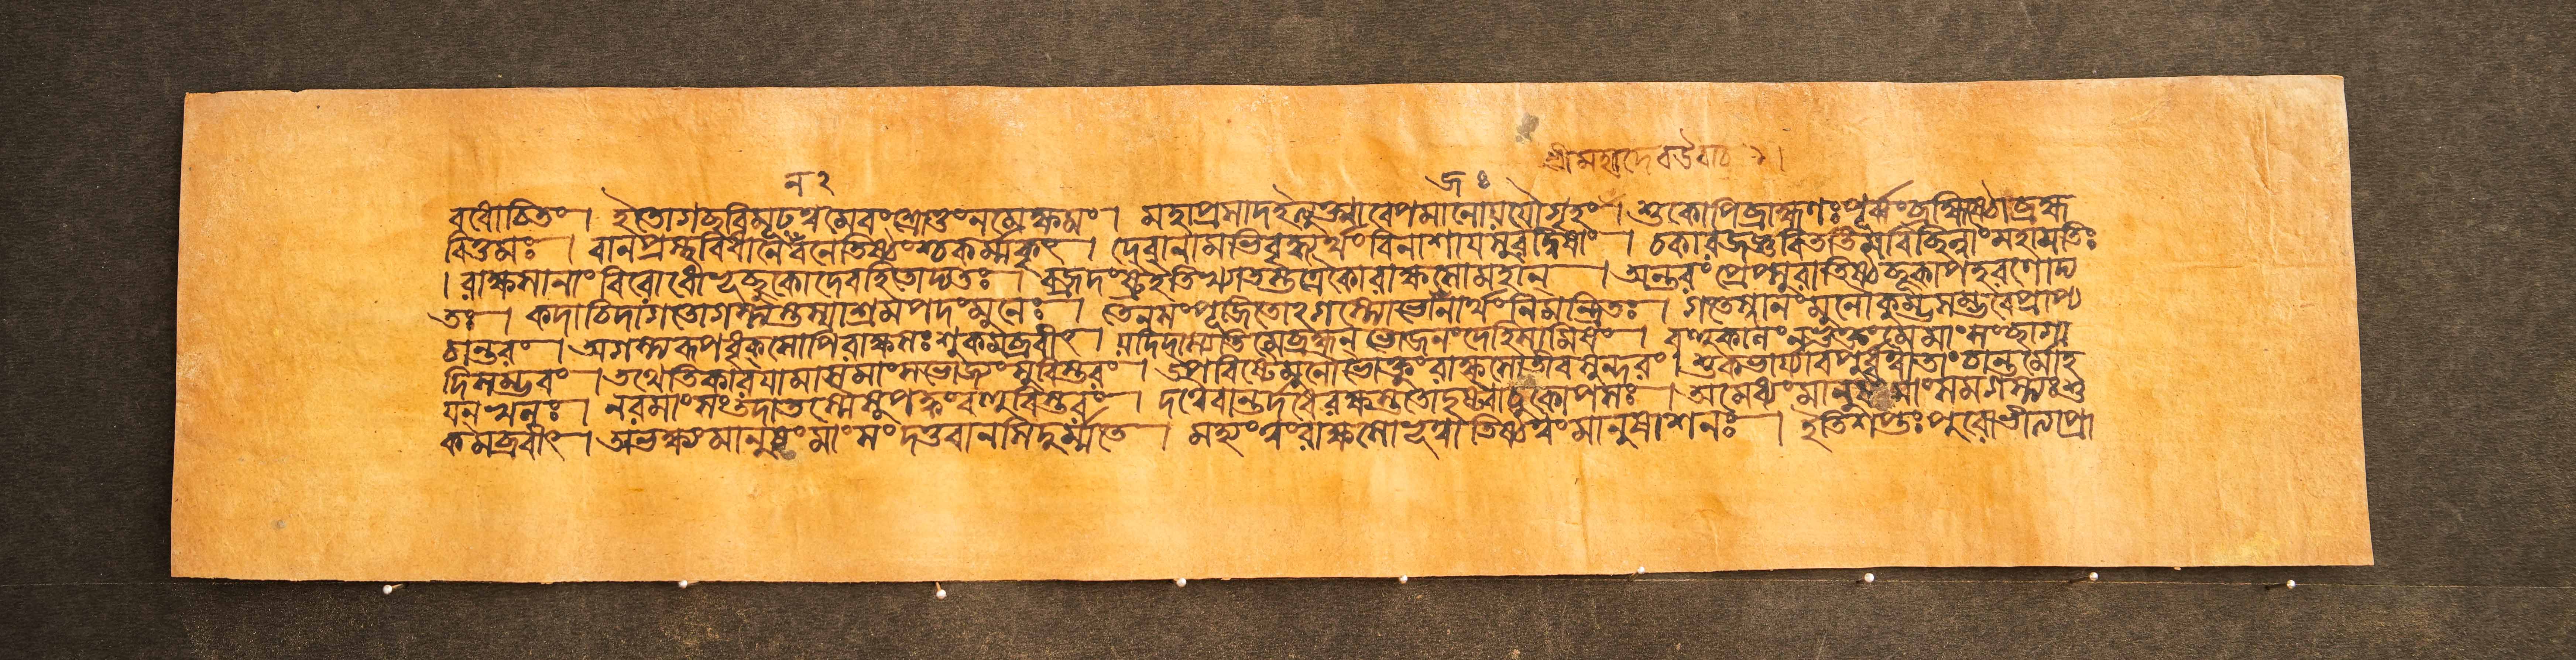 শ্রীমহাদেব উবাচ
বধোচিতং। ইতো গচ্ছ বিমূঢ় ত্বমেবং শ্রোতুং ন মে ক্ষমং। মহাপ্রসাদ ইত্যুক্ত্বা বেপমানো যযৌ গৃহং। শুকোপি ব্রাহ্মণঃ পূর্ব্বং ব্রহ্মিষ্ঠো ব্রহ্ম
বিত্তমঃ। বানপ্রস্থবিধানেন বনে তিষ্ঠং স্বকর্ম্মকৃৎ। দেবানামভিবৃদ্ধ্যর্থং বিনাশায সুরদ্বিষাং। চকার যজ্ঞবিততিমবিচ্ছিন্নাং মহামতিঃ
। রাক্ষসানাং বিরোধোভূচ্ছুকো দেবহিতোদ্যতঃ। বজ্রদংষ্ট্র ইতি খ্যাতস্তত্রৈকো রাক্ষসো মহান। অন্তরং প্রেপ্সুরাতিষ্ঠচ্ছুকাপহরণোদ্য
তঃ। কদাচিদাগতোগস্ত্যস্তস্যাশ্রমপদং মুনেঃ। তেন সংপূজিতোঽগস্ত্যো ভোজনার্থং নিমন্ত্রিতঃ। গতে স্নানং মুনৌ কুম্ভসম্ভবে প্রাপ্য
চান্তরং। অগস্ত্যরূপধৃক্ সোপি রাক্ষসঃ শুকমব্রবীৎ। যদি দাস্যসি মে ব্রহ্মন্ ভোজনং দেহি সামিষং। বহুকালং ন ভুক্তং মে মাংসং ছাগা
দিসম্ভবং। তথেতি কারযামাস মাংসভোজ্যং সুবিস্তরং। উপবিষ্টে মুনৌ ভোক্তুং রাক্ষসোতীব সুন্দরং। শুকভার্য্যাবপুর্ধৃত্বা তাং চান্তর্মোহ
যন্ খলঃ। নরমাংসং দদৌ তস্মৈ সুপক্কং বহুবিস্তরং। দত্বৈবান্তর্দধে রক্ষস্ততো দৃষ্ট্বা চুকোপ সঃ। অমেধ্যং মানুষং মাংসমগস্ত্যঃ শু
কমব্রবীৎ। অভক্ষ্যং মানুষং মাংসং দত্তবানসি দুর্ম্মতে। মহ্যং ত্বং রাক্ষসো ভূত্বা তিষ্ঠ ত্বং মানুষাশনঃ। ইতি শপ্তঃ পুরো ভীত্যা প্রা